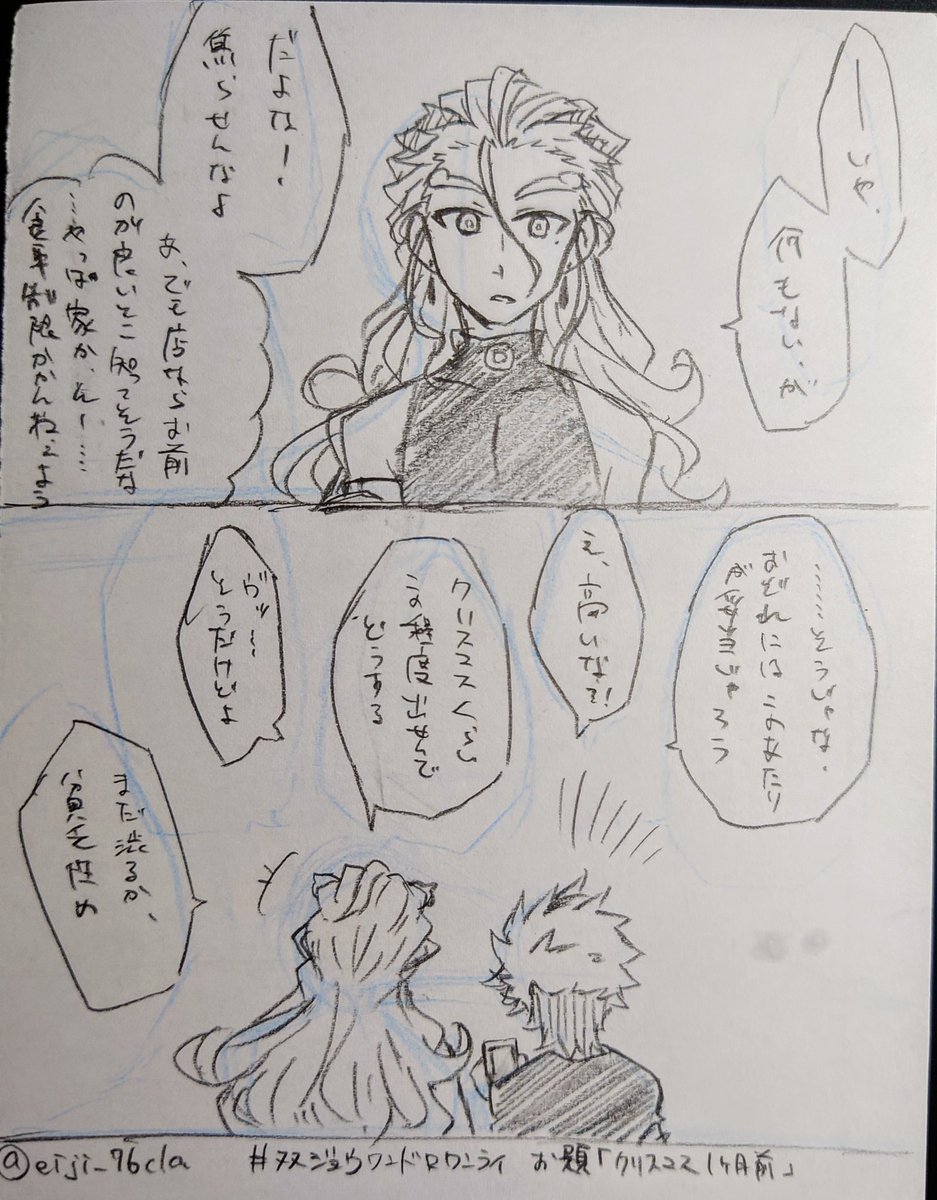 ―いや、
何もないが
だよな!
焦らせんなよ
あ、でも店ならお前
のが良いとこ知ってそうだな
……やっぱ家か、んー……
食事制限かかんねぇよう
……そうじゃな、
おどれにはこのあたり
じゃろう
え、高いな?!
クリスマスくらい
この程度出せんで
どうする
ヴッ〜
そうだけどよ
まだ渋るか、
貧乏性め
@eiji_76cla #双ジョウワンドロワンライ お題「クリスマス1ヶ月前」